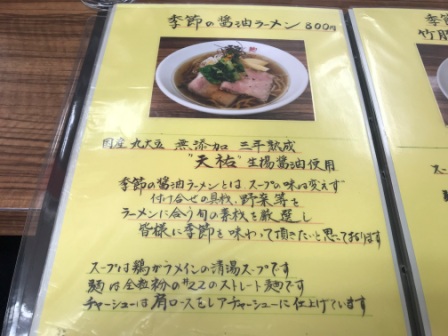 季節の醤油ラーメン 800円
国産 丸大豆 無添加 三年熟成
"天祐" 生揚醤油使用
季節の醤油ラーメンとは スープの味は変えず
付け合せの具材、野菜等を
ラーメンに合う旬の素材を厳選し
皆様に季節を味わって頂きたいと思っております
スープは鶏がメインの清湯スープです
麺は全粒粉の#22のストレート麺です
チャーシューは肩ロースをレアチャーシューに仕上げています
季節
竹